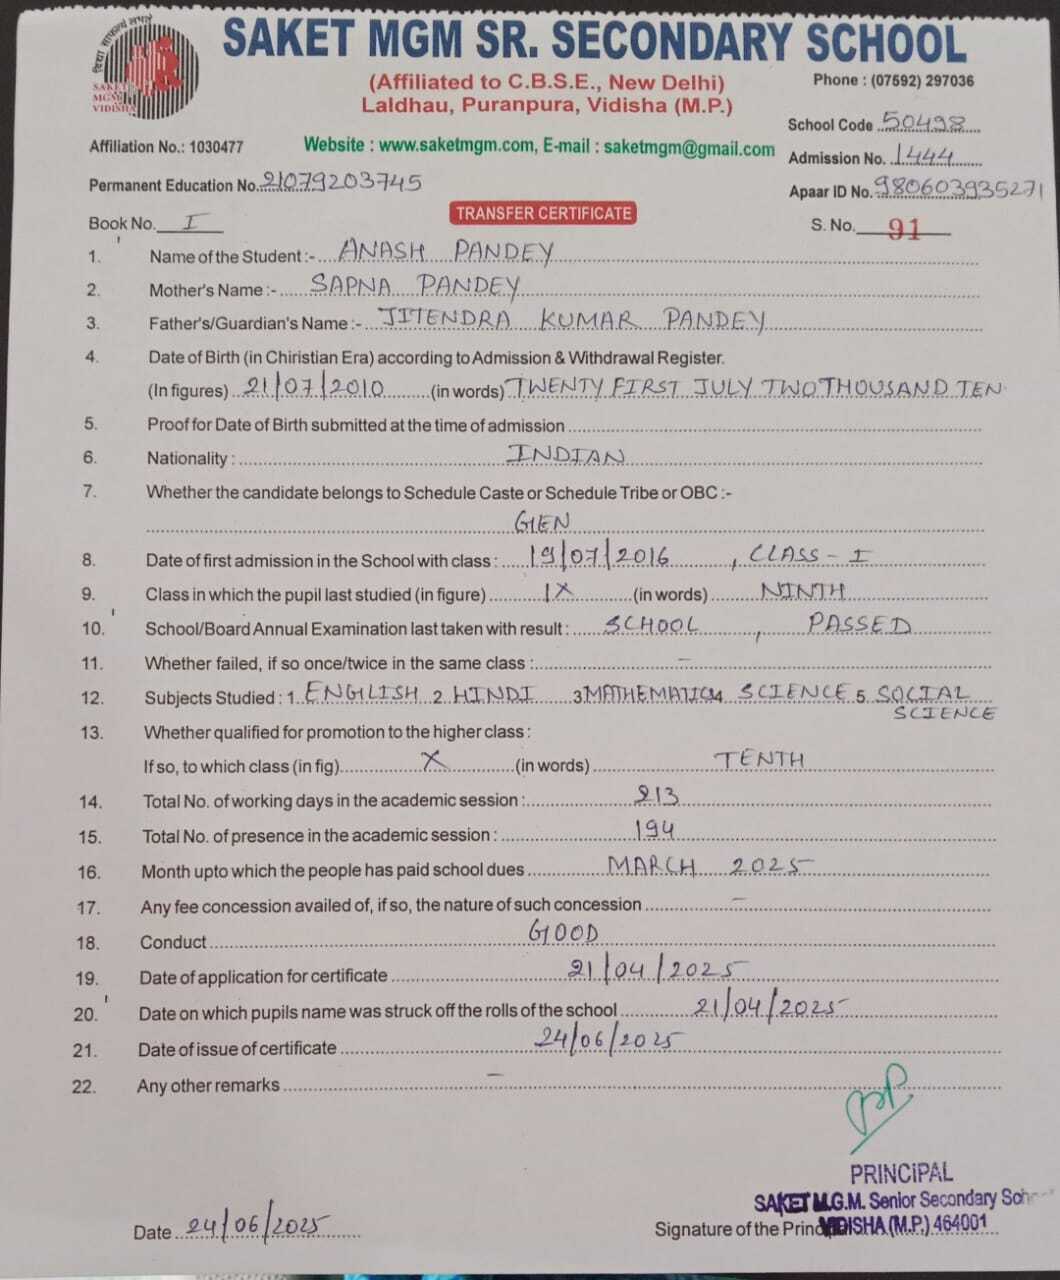 विद्या साफल्यं लभते
SAKET
MGM
VIDISHA
SAKET MGM SR. SECONDARY SCHOOL
(Affiliated to C.B.S.E., New Delhi)
Laldhau, Puranpura, Vidisha (M.P.)
Phone : (07592) 297036
School Code 50498
Affiliation No.: 1030477
Website : www.saketmgm.com, E-mail : saketmgm@gmail.com
Admission No. 1444
Permanent Education No. 21079203745
Apaar ID No. 980603935271
Book No. I
TRANSFER CERTIFICATE
S. No. 91
1. Name of the Student :- ANASH PANDEY
2. Mother's Name :- SAPNA PANDEY
3. Father's/Guardian's Name :- JITENDRA KUMAR PANDEY
4. Date of Birth (in Chiristian Era) according to Admission & Withdrawal Register.
(In figures) 21/07/2010 (in words) TWENTY FIRST JULY TWO THOUSAND TEN
5. Proof for Date of Birth submitted at the time of admission
6. Nationality : INDIAN
7. Whether the candidate belongs to Schedule Caste or Schedule Tribe or OBC :-
GEN
8. Date of first admission in the School with class : 19/07/2016, CLASS - I
9. Class in which the pupil last studied (in figure) IX (in words) NINTH
10. School/Board Annual Examination last taken with result : SCHOOL, PASSED
11. Whether failed, if so once/twice in the same class : -
12. Subjects Studied : 1. ENGLISH 2. HINDI 3 MATHEMATICS 4. SCIENCE 5. SOCIAL
SCIENCE
13. Whether qualified for promotion to the higher class :
If so, to which class (in fig) X (in words) TENTH
14. Total No. of working days in the academic session : 213
15. Total No. of presence in the academic session : 194
16. Month upto which the people has paid school dues MARCH 2025
17. Any fee concession availed of, if so, the nature of such concession -
18. Conduct GOOD
19. Date of application for certificate 21/04/2025
20. Date on which pupils name was struck off the rolls of the school 21/04/2025
21. Date of issue of certificate 24/06/2025
22. Any other remarks -
PRINCIPAL
SAKET M.G.M. Senior Secondary
VIDISHA (M.P.) 464001
Date 24/06/2025
Signature of the